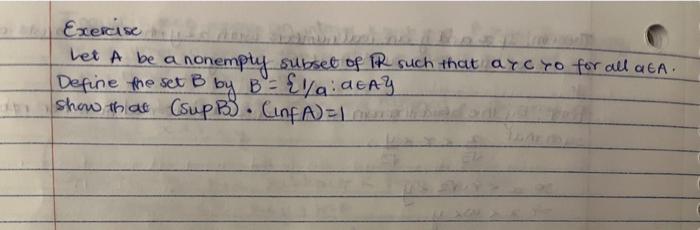 Exercise
Let A be a nonempty subset of ℝ such that a > c > 0 for all a∈A.
Define the set B by B = {1/a : a∈A}
show that (sup B) · (inf A) = 1